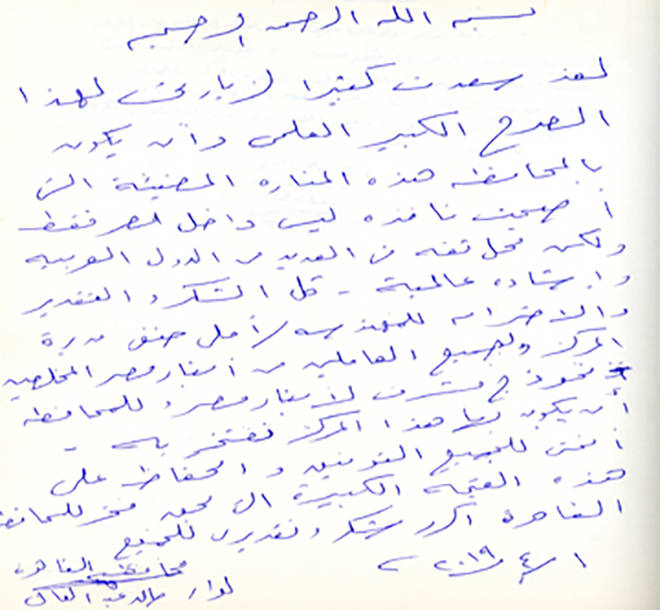 بسم الله الرحمن الرحيم
لقد سعدت كثيرا لزيارتى لهذا
الصرح الكبير العلمى وأن يكون
بالمحافظة هذه المناره المضيئة التى
أصبحت نافذه ليس داخل مصر فقط
ولكن محل ثقه من العديد من الدول العربيه
واشاده عالمية - كل الشكر والتقدير
والاحترام للمهندسه / أمل مديرة
المركز ولجميع العاملين من أبناء مصر المخلصين
نموذج مشرف لأبناء مصر وللمحافظه
أن يكون لها هذا المركز نفتخر به -
أتمنى للجميع التوفيق والحفاظ على
هذه القيمه الكبيرة التى محل فخر للمحافظة
القاهرة اكرر شكر وتقديرى للجميع
١/٤/٢٠١٩
محافظ القاهره
لواء / خالد عبد العال